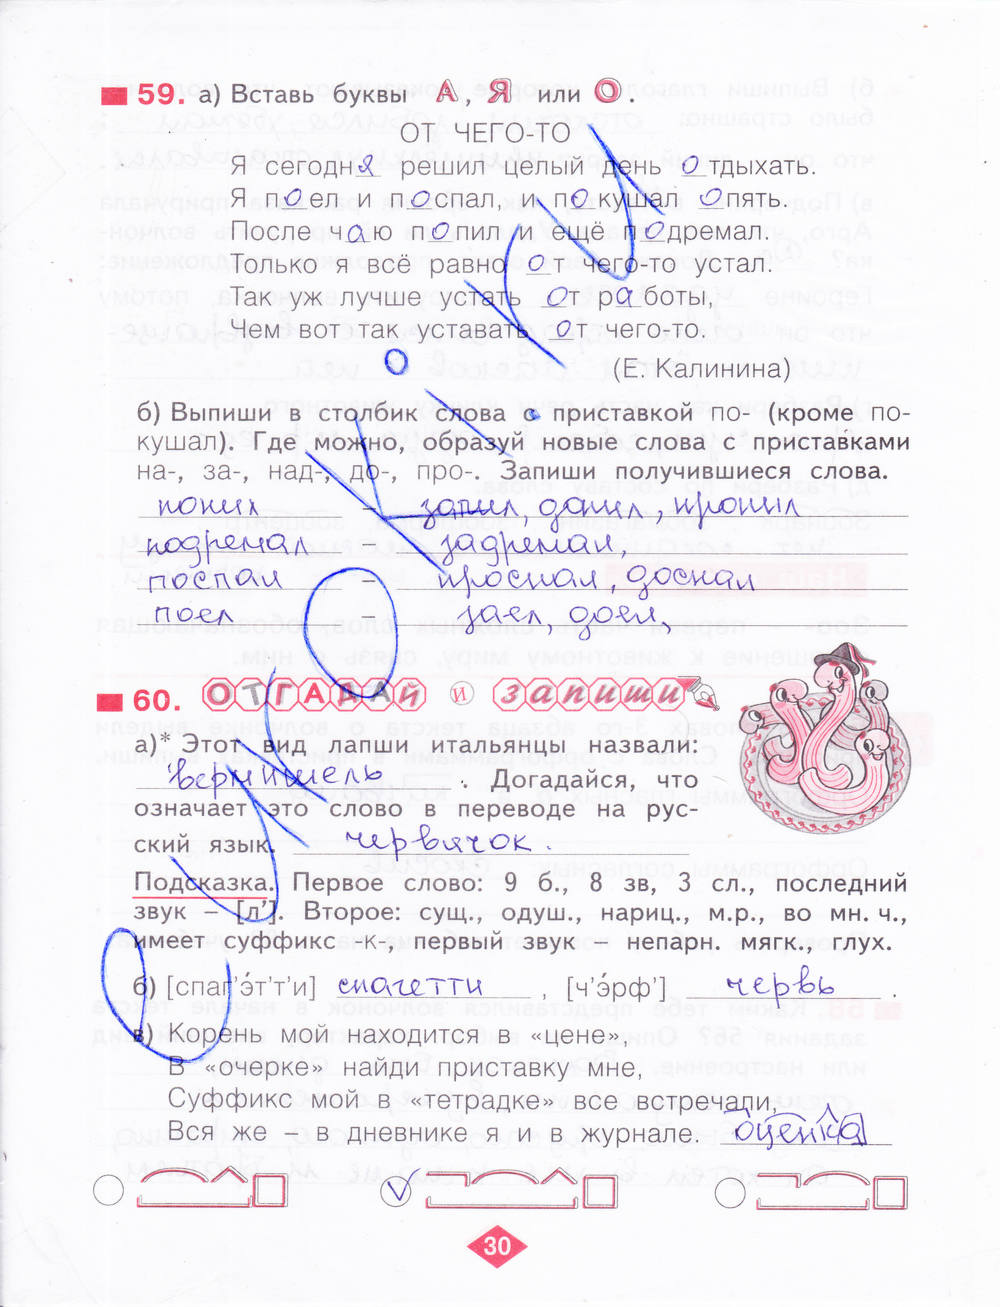 59. а) Вставь буквы А, Я или О.
ОТ ЧЕГО-ТО
Я сегодня решил целый день отдыхать.
Я поел и поспал, и покушал опять.
После чаю попил и ещё подремал.
Только я всё равно от чего-то устал.
Так уж лучше устать от работы,
Чем вот так уставать от чего-то.
(Е. Калинина)
б) Выпиши в столбик слова с приставкой по- (кроме по-
кушал). Где можно, образуй новые слова с приставками
на-, за-, над-, до-, про-. Запиши получившиеся слова.
попил – запил, допил, пропил
подремал – задремал,
поспал – проспал, доспал
поел – заел, доел,
60. ОТГАДАЙ и запиши
а)* Этот вид лапши итальянцы назвали:
вермишель. Догадайся, что
означает это слово в переводе на рус-
ский язык. червячок.
Подсказка. Первое слово: 9 б., 8 зв, 3 сл., последний
звук – [л’]. Второе: сущ., одуш., нариц., м.р., во мн. ч.,
имеет суффикс -к-, первый звук – непарн. мягк., глух.
б) [спаг’э́т’т’и] спагетти, [ч’э́рф’] червь.
в) Корень мой находится в «цене»,
В «очерке» найди приставку мне,
Суффикс мой в «тетрадке» все встречали,
Вся же – в дневнике я и в журнале. оценка
30